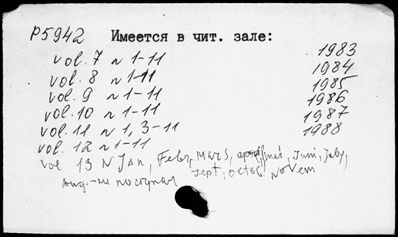 P5942 Имеется в чит. зале:
vol. 7 N 1-11 1983
vol. 8 N 1-11 1984
vol. 9 N 1-11 1985
vol. 10 N 1-11 1986
vol. 11 N 1, 3-11 1987
vol. 12 N 1-11 1988
vol 13 N Jan, Febr, Mars, april, mai, Juni, July,
Aug.-не поступал Sept, octob, Novem